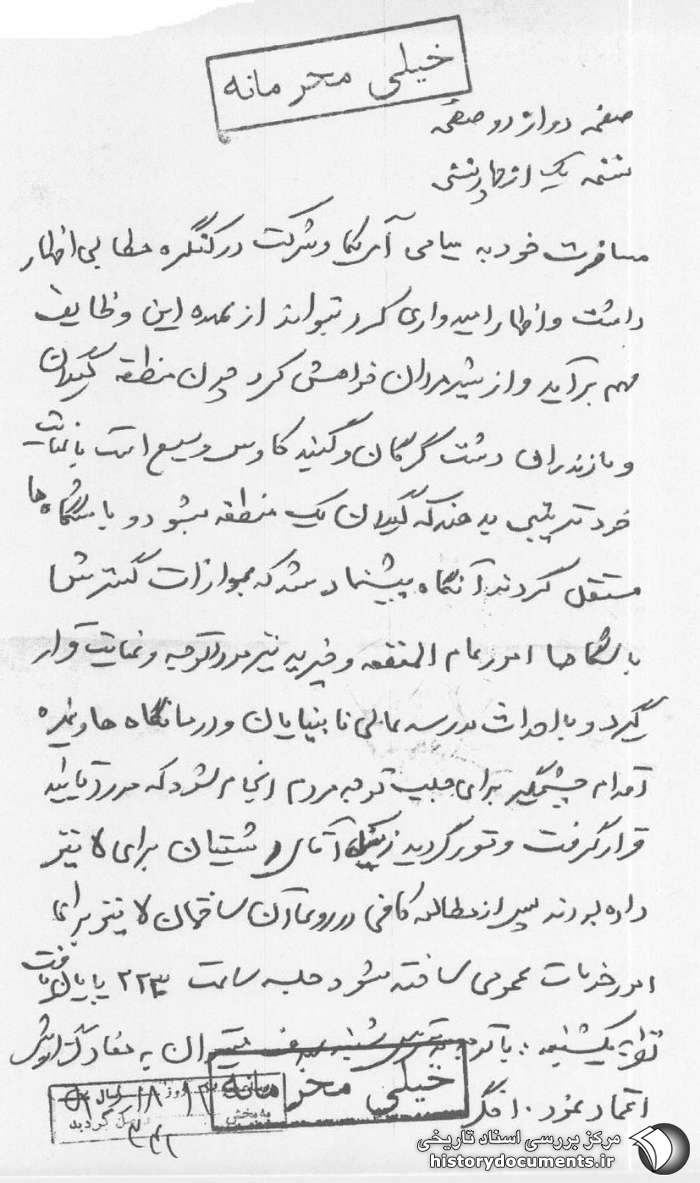 خیلی محرمانه
صفحه دو از دو صفحه
نسخه یک از چهار نسخه
مسافرت خود به میامی آمریکا و شرکت در کنگره مطالبی اظهار
داشت و اظهار امیدواری کرد بتواند از عهده این وظایف
مهم برآید و از شیرمردان خواهش کرد چون منطقه گیلان
و مازندران دشت گرگان و گنبد کاوس وسیع است با عنایت
خود ترتیبی بدهند که گیلان یک منطقه بشود و باشگاه ها
مستقل گردند آنگاه پیشنهاد شد که بموازات گسترش
باشگاهها امور عام المنفعه و خیریه نیز مورد توجه و عنایت قرار
گیرد و با احداث مدرسه عالی نابینایان و درمانگاه ها و غیره
اقدام چشمگیر برای جلب توجه مردم انجام شود که مورد تأیید
قرار گرفت و مقرر گردید زمینیکه آقای رشتیان برای لاینز
داده بودند پس از مطالعه کافی در روی آن ساختمان لاینز برای
امور خدمات عمومی ساخته شود جلسه ساعت ۲۲۳۰ پایان یافت
نظریه یکشنبه : با توجه به شنبه میتوان به مفاد گزارش
اعتماد نمود .
خیلی محرمانه
روز
به بخش
گردید
مرکز بررسی اسناد تاریخی
historydocuments.ir